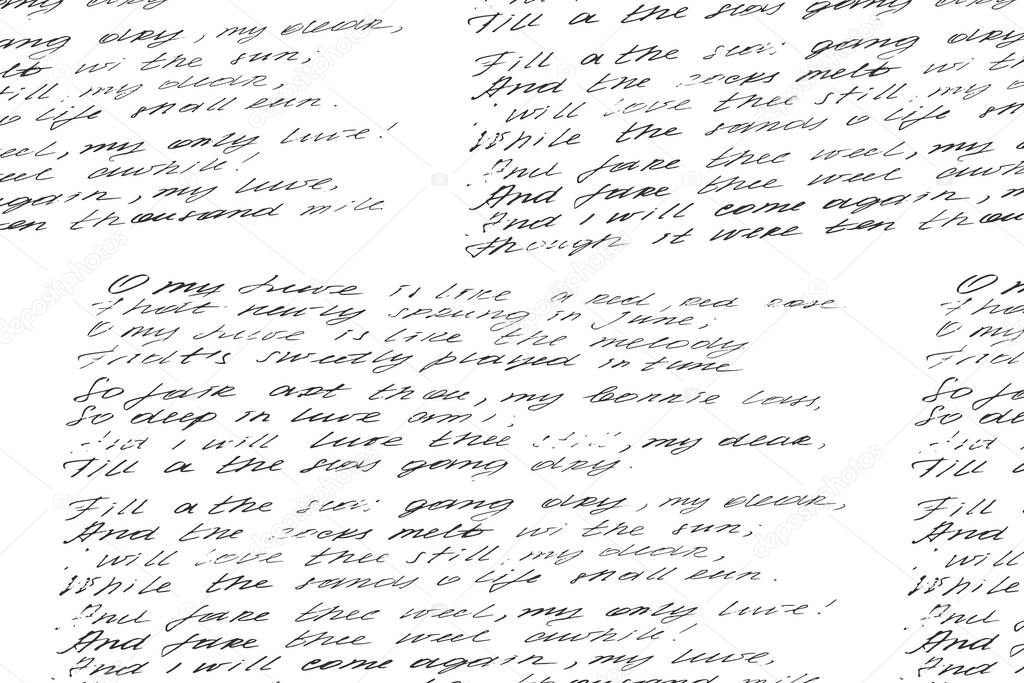 ang dry, my dear,
melt wi the sun;
still, my dear,
o life shall run.
weel, my only luve!
weel awhile!
again, my luve,
ten thousand mile
Till a the seas gang dry
Till a the seas gang dry
And the rocks melt wi th
will love thee still, my d
While the sands o life sh
And fare thee weel, my o
And fare thee weel awh
And I will come again, m
Though it were ten thou
O my luve is like a red, red rose
That newly sprung in June;
O my luve is like the melody
That's sweetly played in tune
So fair art thou, my bonnie lass,
So deep in luve am i;
And I will luve thee still, my dear,
Till a the seas gang dry.
Till a the seas gang dry, my dear,
And the rocks melt wi the sun;
will love thee still, my dear,
While the sands o life shall run.
And fare thee weel, my only luve!
And fare thee weel awhile!
And I will come again, my luve,
thousand mile
O m
That
O my
That
So fa
So de
And I
Till
Till
And
will
While
And
And
And I